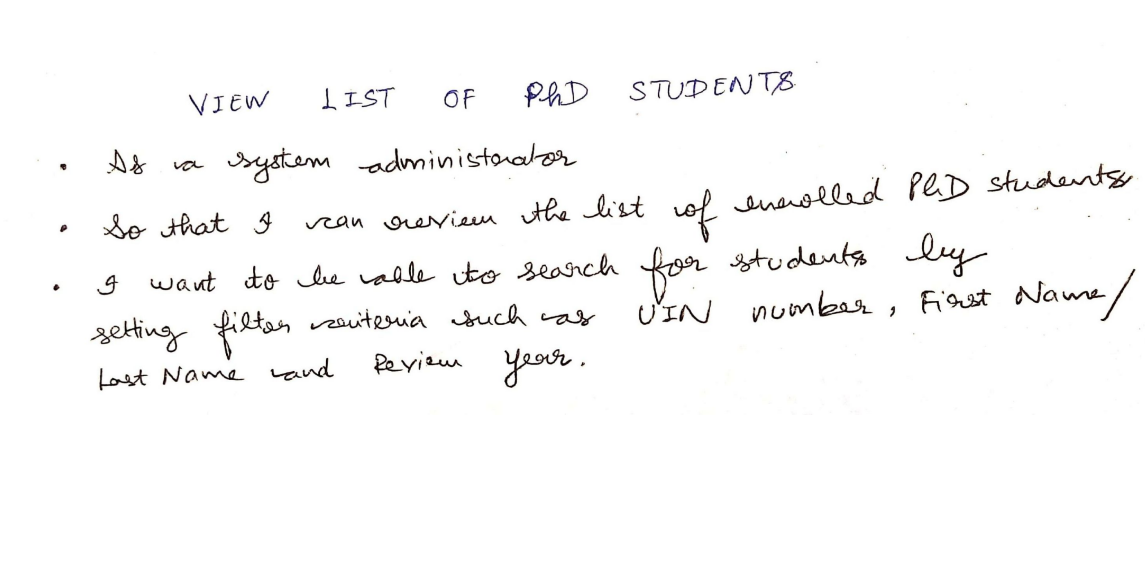 VIEW LIST OF PhD STUDENTS
• As a system administrator
• So that I can review the list of enrolled PhD students
• I want to be able to search for students by
setting filter criteria such as UIN number, First Name/
Last Name and Review year.